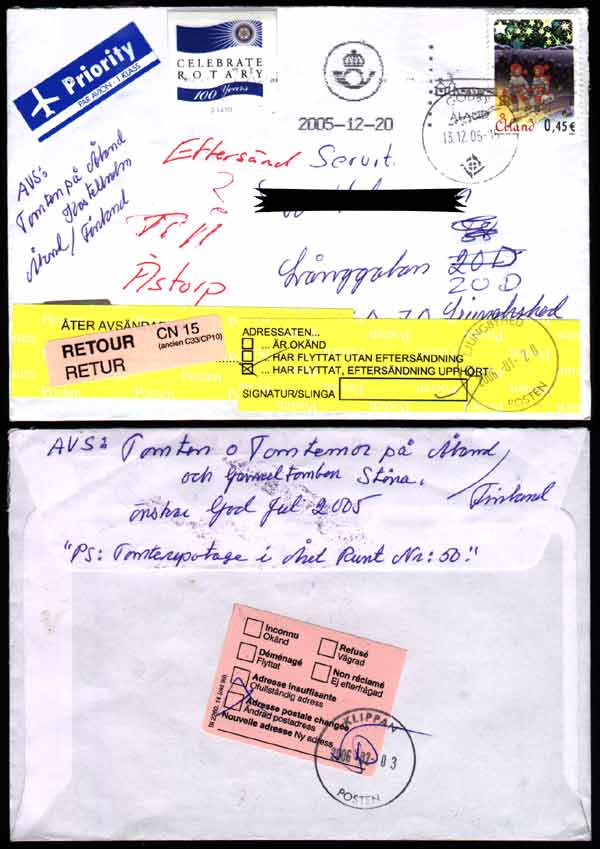 Priority
PAR AVION - 1 KLASS
CELEBRATE
ROTARY
100 Years
2005-12-20
Åland
0,45€
13.12.05
AVS:
Tomten på Åland
Åland / Finland
Eftersänd
Till
Åstorp
Servit.
Långgatan 20D
20D
Ljungbyhed
ÅTER AVSÄNDA
RETOUR CN 15
(ancien C33/CP10)
RETUR
Posten
ADRESSATEN...
... ÄR OKÄND
... HAR FLYTTAT UTAN EFTERSÄNDNING
... HAR FLYTTAT, EFTERSÄNDNING UPPHÖRT
SIGNATUR/SLINGA
LJUNGBYHED
2006-01-20
POSTEN
AVS: Tomten o Tomtemor på Åland,
och Stöna. Finland
önskar God Jul 2005
"PS: Tomtereportage i Året Runt Nr: 50."
Inconnu
Okänd
Refusé
Vägrad
Déménagé
Flyttat
Non réclamé
Ej efterfrågad
Adresse insuffisante
Ofullständig adress
Adresse postale changée
Ändrad postadress
Nouvelle adresse Ny adress
KLIPPAN
2006-02-03
POSTEN